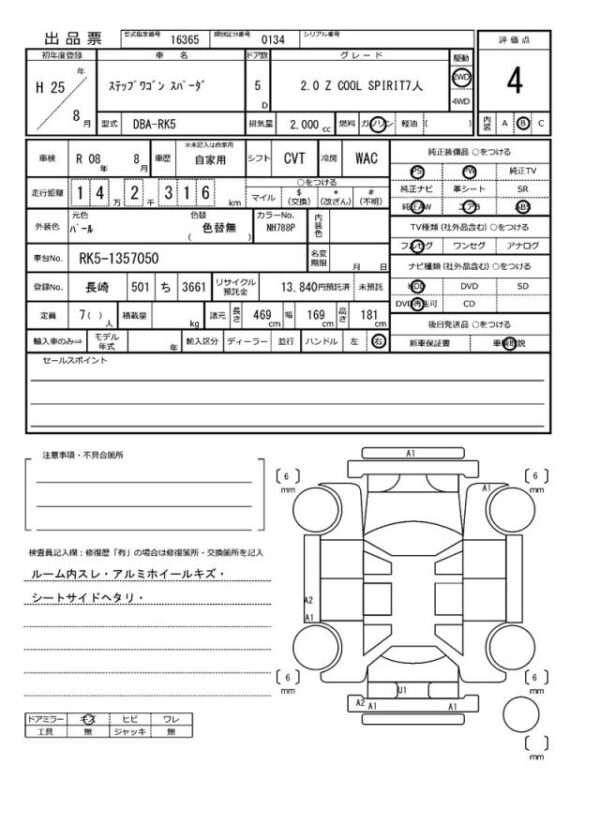 出品票 型式指定番号 16365 類別区分番号 0134 シリアル番号
評価点
4
内装 A B C
初年度登録 車名 ドア数 グレード 駆動
H 25 年 8 月
ステップワゴン スパーダ 5 D 2.0 Z COOL SPIRIT7人 2WD
4WD
型式 DBA-RK5 排気量 2,000 cc 燃料 ガソリン 軽油 ( )
車検 R 08 年 8 月 車歴 ※未記入は自家用 自家用 シフト CVT 冷房 WAC
走行距離 1 4 万 2 千 3 1 6 km
○をつける
マイル $ (交換) * (改ざん) # (不明)
外装色 元色 パール 色替 色替無 ( ) カラーNo. NH788P 内装色
車台No. RK5-1357050 名変期限 月 日
登録No. 長崎 501 ち 3661 リサイクル預託金 13,840円預託済 未預託
定員 7( ) 人 積載量 kg 諸元 長さ 469 cm 幅 169 cm 高さ 181 cm
輸入車のみ⇒ モデル年式 年 輸入区分 ディーラー 並行 ハンドル 左 右
純正装備品 ○をつける
PS PW 純正TV
純正ナビ 革シート SR
純正AW エアB ABS
TV種類(社外品含む) ○をつける
フルセグ ワンセグ アナログ
ナビ種類(社外品含む) ○をつける
HDD DVD SD
DVD再生可 CD
後日発送品 ○をつける
新車保証書 車輌取説
セールスポイント
注意事項・不具合箇所
検査員記入欄:修復歴「有」の場合は修復箇所・交換箇所を記入
ルーム内スレ・アルミホイールキズ・
シートサイドヘタリ・
ドアミラー キズ ヒビ ワレ
工具 無 ジャッキ 無
A1
( 6 ) mm
A1
( 6 ) mm
A2
A1
( 6 ) mm
( 6 ) mm
U1
A2 A1 A1
( ) mm